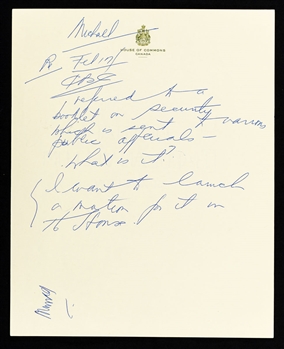 Michael
HOUSE OF COMMONS
CANADA
Re Feb 17
CBC
referred to a
booklet on security
which is sent to various
public officials –
What is it?
I want to launch
a motion for it in
the House.